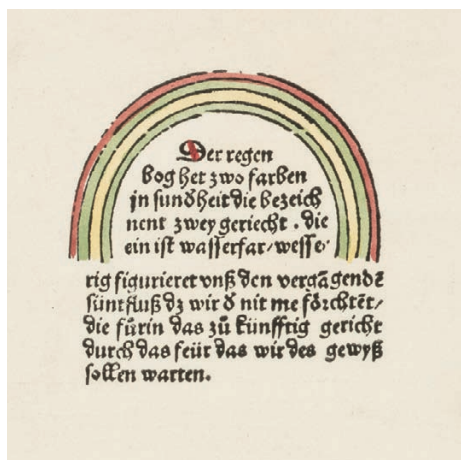 Der regen
bog het zwo farben
in sunðheit die bezeich
nent zwey geriecht . die
ein ist wasserfar / wesse⸗
rig figurieret vnß den vergāgendē
süntfluß dz wir ð nit me förchtēt /
die fürin das zů künfftig gericht
durch das feür das wir des gewyß
sollen warten.